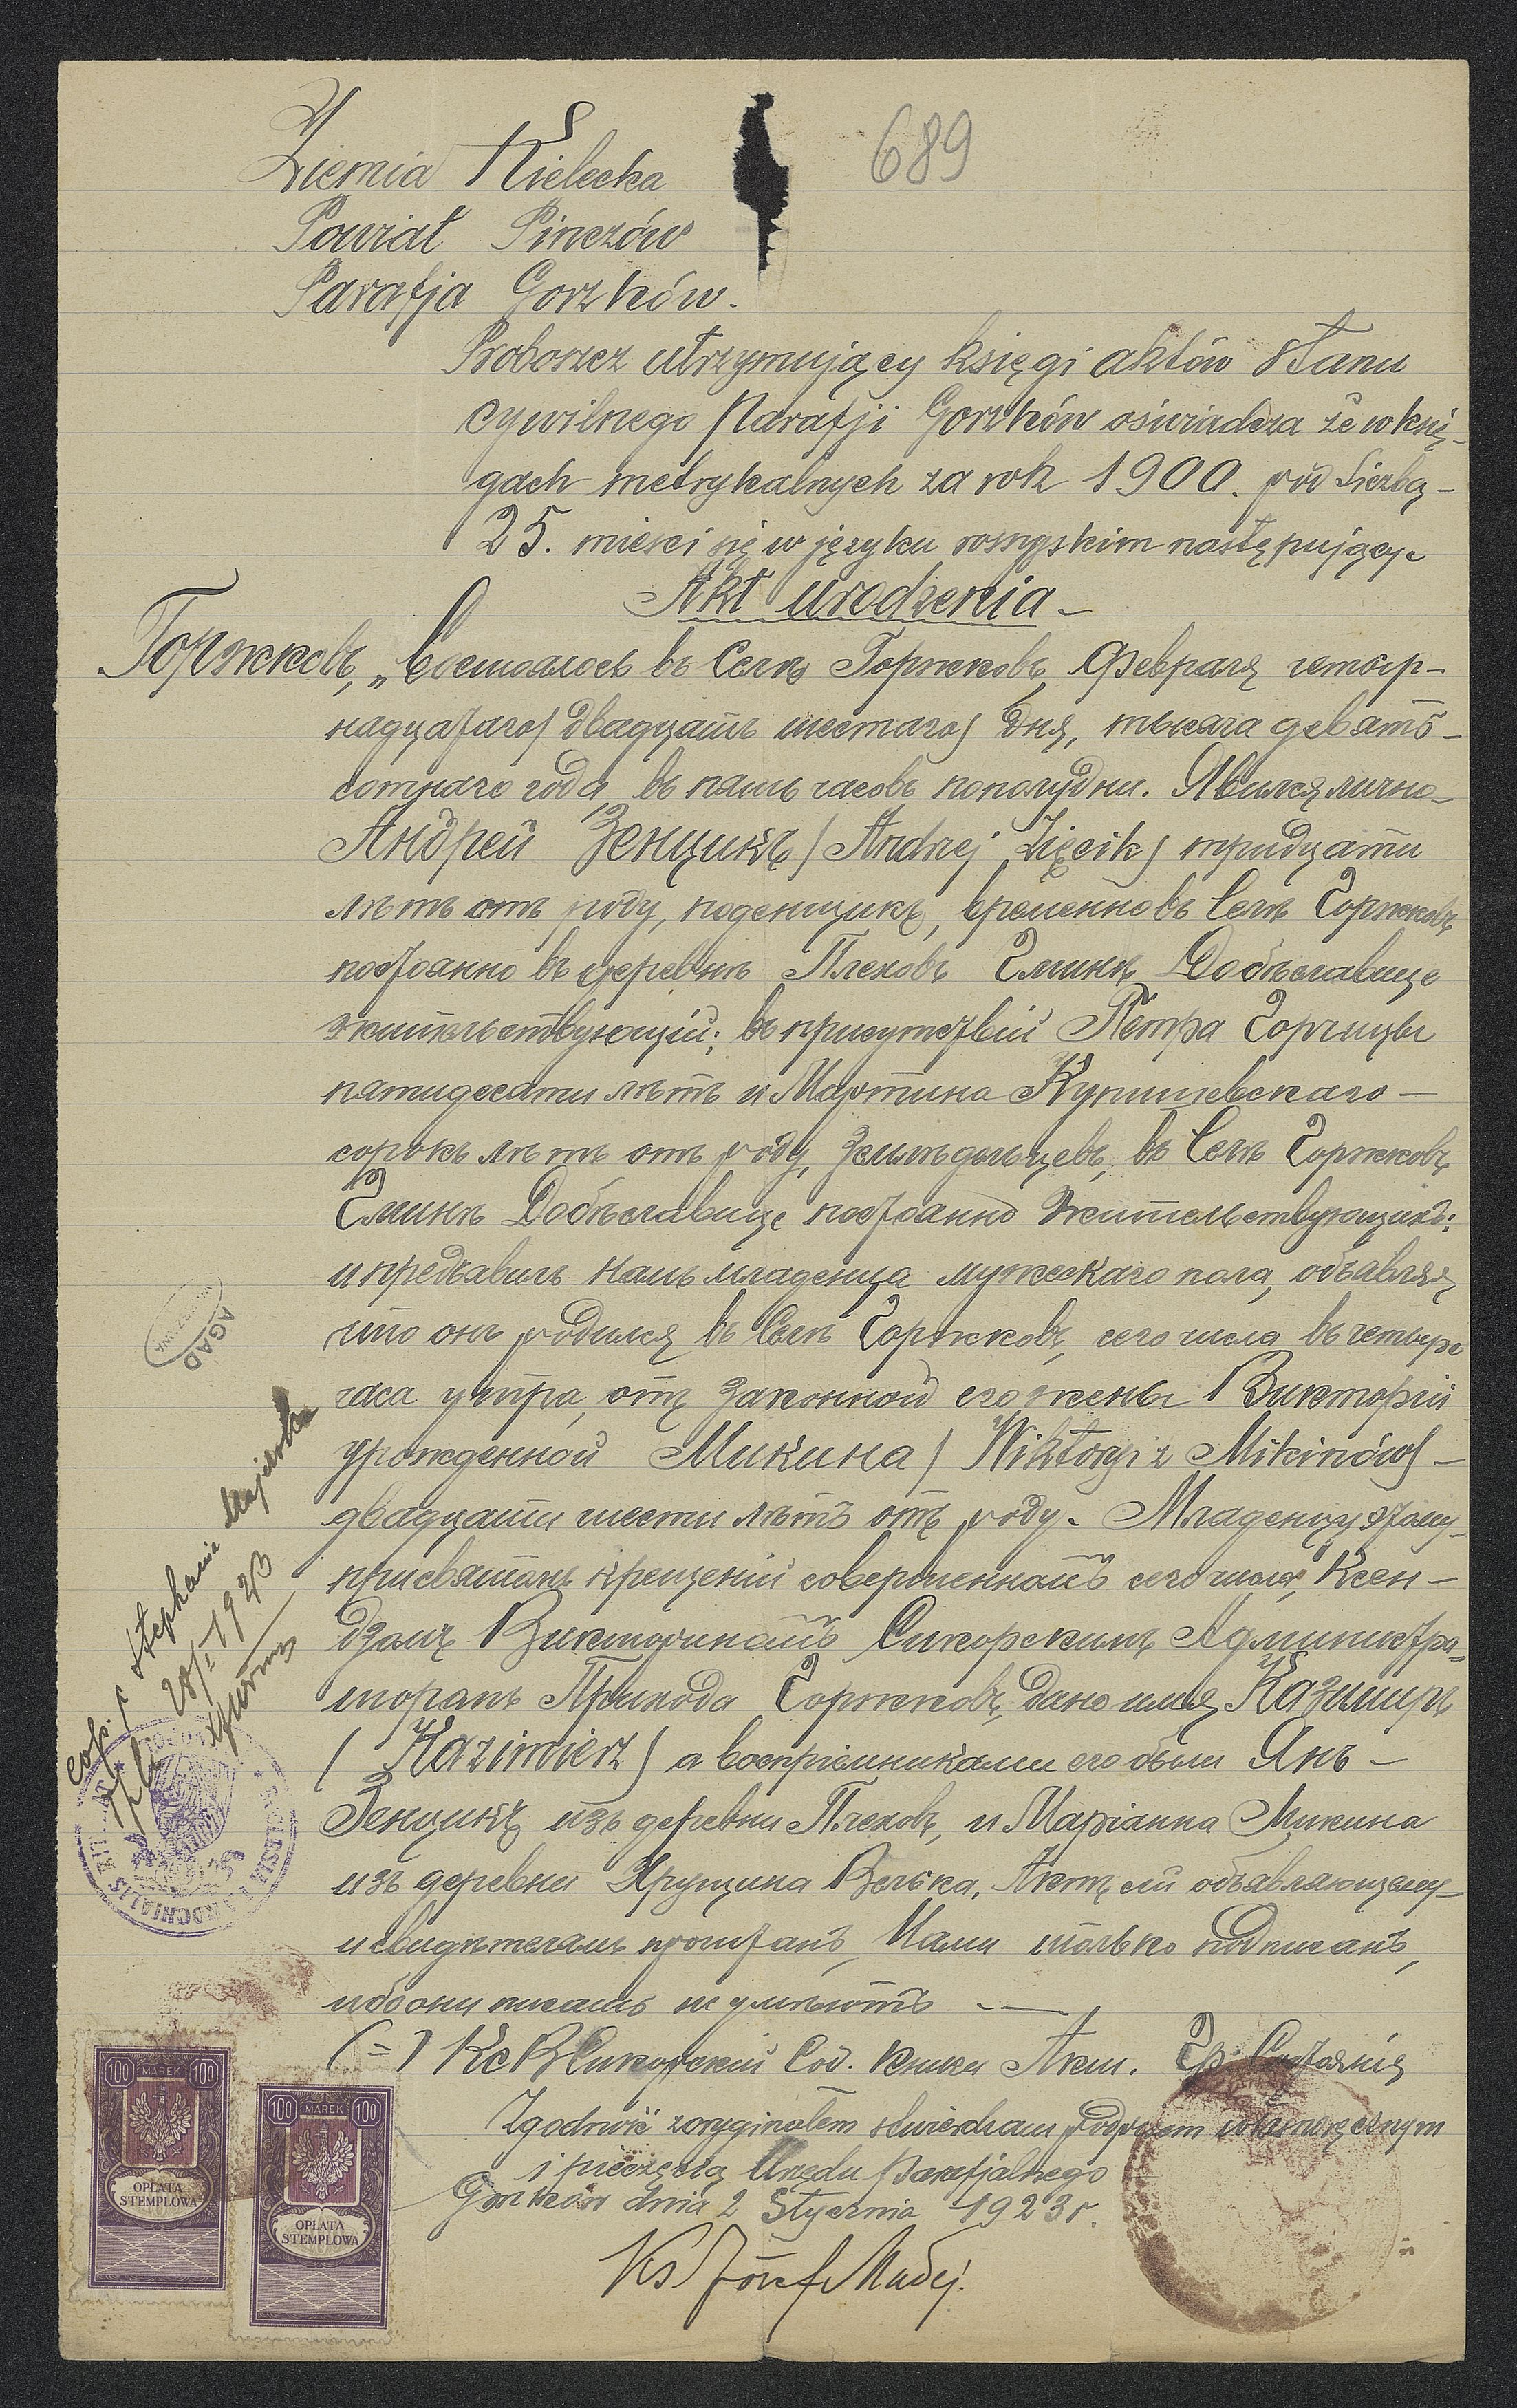 689
Ziemia Kielecka
Powiat Pinczów
Parafja Gorzków.
Proboszcz utrzymujący księgi aktów stanu
cywilnego Parafji Gorzków oświadcza że w księ-
gach metrykalnych za rok 1900. pod liczbą -
25. mieści się w języku rossyjskim następujący
Akt urodzenia -
Горжковъ, „Состоялось въ Селѣ Горжковъ, Февраля четыр-
надцатаго/двадцать шестаго/ дня, тысяча девять-
сотнаго года въ пять часовъ пополудни. Явился лично-
Андрей Зенцикъ /Andrzej Zięcik/ тридцати
лѣтъ отъ роду, поденщикъ, временно въ Селѣ Горжковъ
постоянно въ деревнѣ Плеховъ Гминѣ Добѣславице
жительствующій; въ присутствіи Петра Горчицы
пятидесяти лѣтъ и Мартина Купишевскаго -
сорокъ лѣтъ отъ роду, Земледѣльцевъ, въ Селѣ Горжковъ
Гминѣ Добѣславице постоянно жительствующихъ:
и предъавилъ намъ младенца мужескаго пола, объявляя
что онъ родился въ Селѣ Горжковъ, сего числа въ четыре
часа утра, отъ законной его жены Викторіи
урожденной Микина / Wiktorji z Mikinów/ -
двадцати шести лѣтъ отъ роду. Младенцу этому-
при святомъ крещеніи совершенномъ сего числа, Ксен-
дзомъ Викториномъ Сикорскимъ Администра=
торомъ Прихода Горжковъ, дано имя Казимиръ
( Kazimierz) а воспріемниками его были Янъ -
Зенцикъ изъ деревни Плеховъ, и Маріанна Микина
изъ деревни Хрущина Велька. Актъ сей объявляющему-
и свидѣтелямъ прочитанъ, Нами только подписанъ,
ибо они писать не умѣютъ -
(=) Кс В Сикорскій Сод. книги Акт. Гр. Состоянія
Zgodność z oryginałem stwierdzam podpisem własnoręcznym
i pieczęcią Urzędu Parafjalnego
Gorzków dnia 2 Stycznia 1923 r.
Ks Józef Madej.
AGAD
cop. c Stephania
1923
100 MAREK 100
OPŁATA
STEMPLOWA
100 MAREK 100
OPŁATA
STEMPLOWA